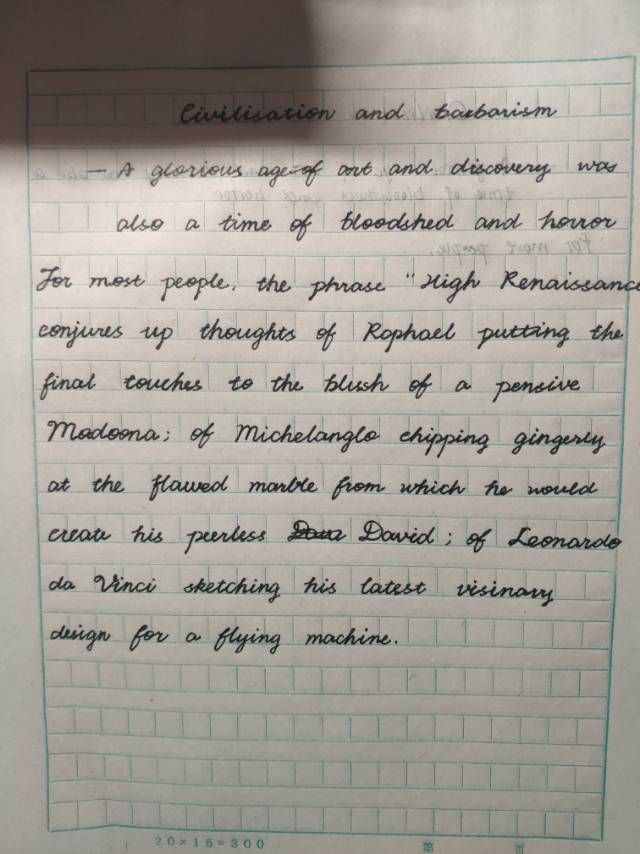 Civilisation and barbarism
— A glorious age of art and discovery was
also a time of bloodshed and horror
For most people, the phrase "High Renaissance
conjures up thoughts of Raphael putting the
final touches to the blush of a pensive
Madoona; of Michelanglo chipping gingerly
at the flawed marble from which he would
create his peerless David; of Leonardo
da Vinci sketching his latest visinary
design for a flying machine.
20×15=300 第 页